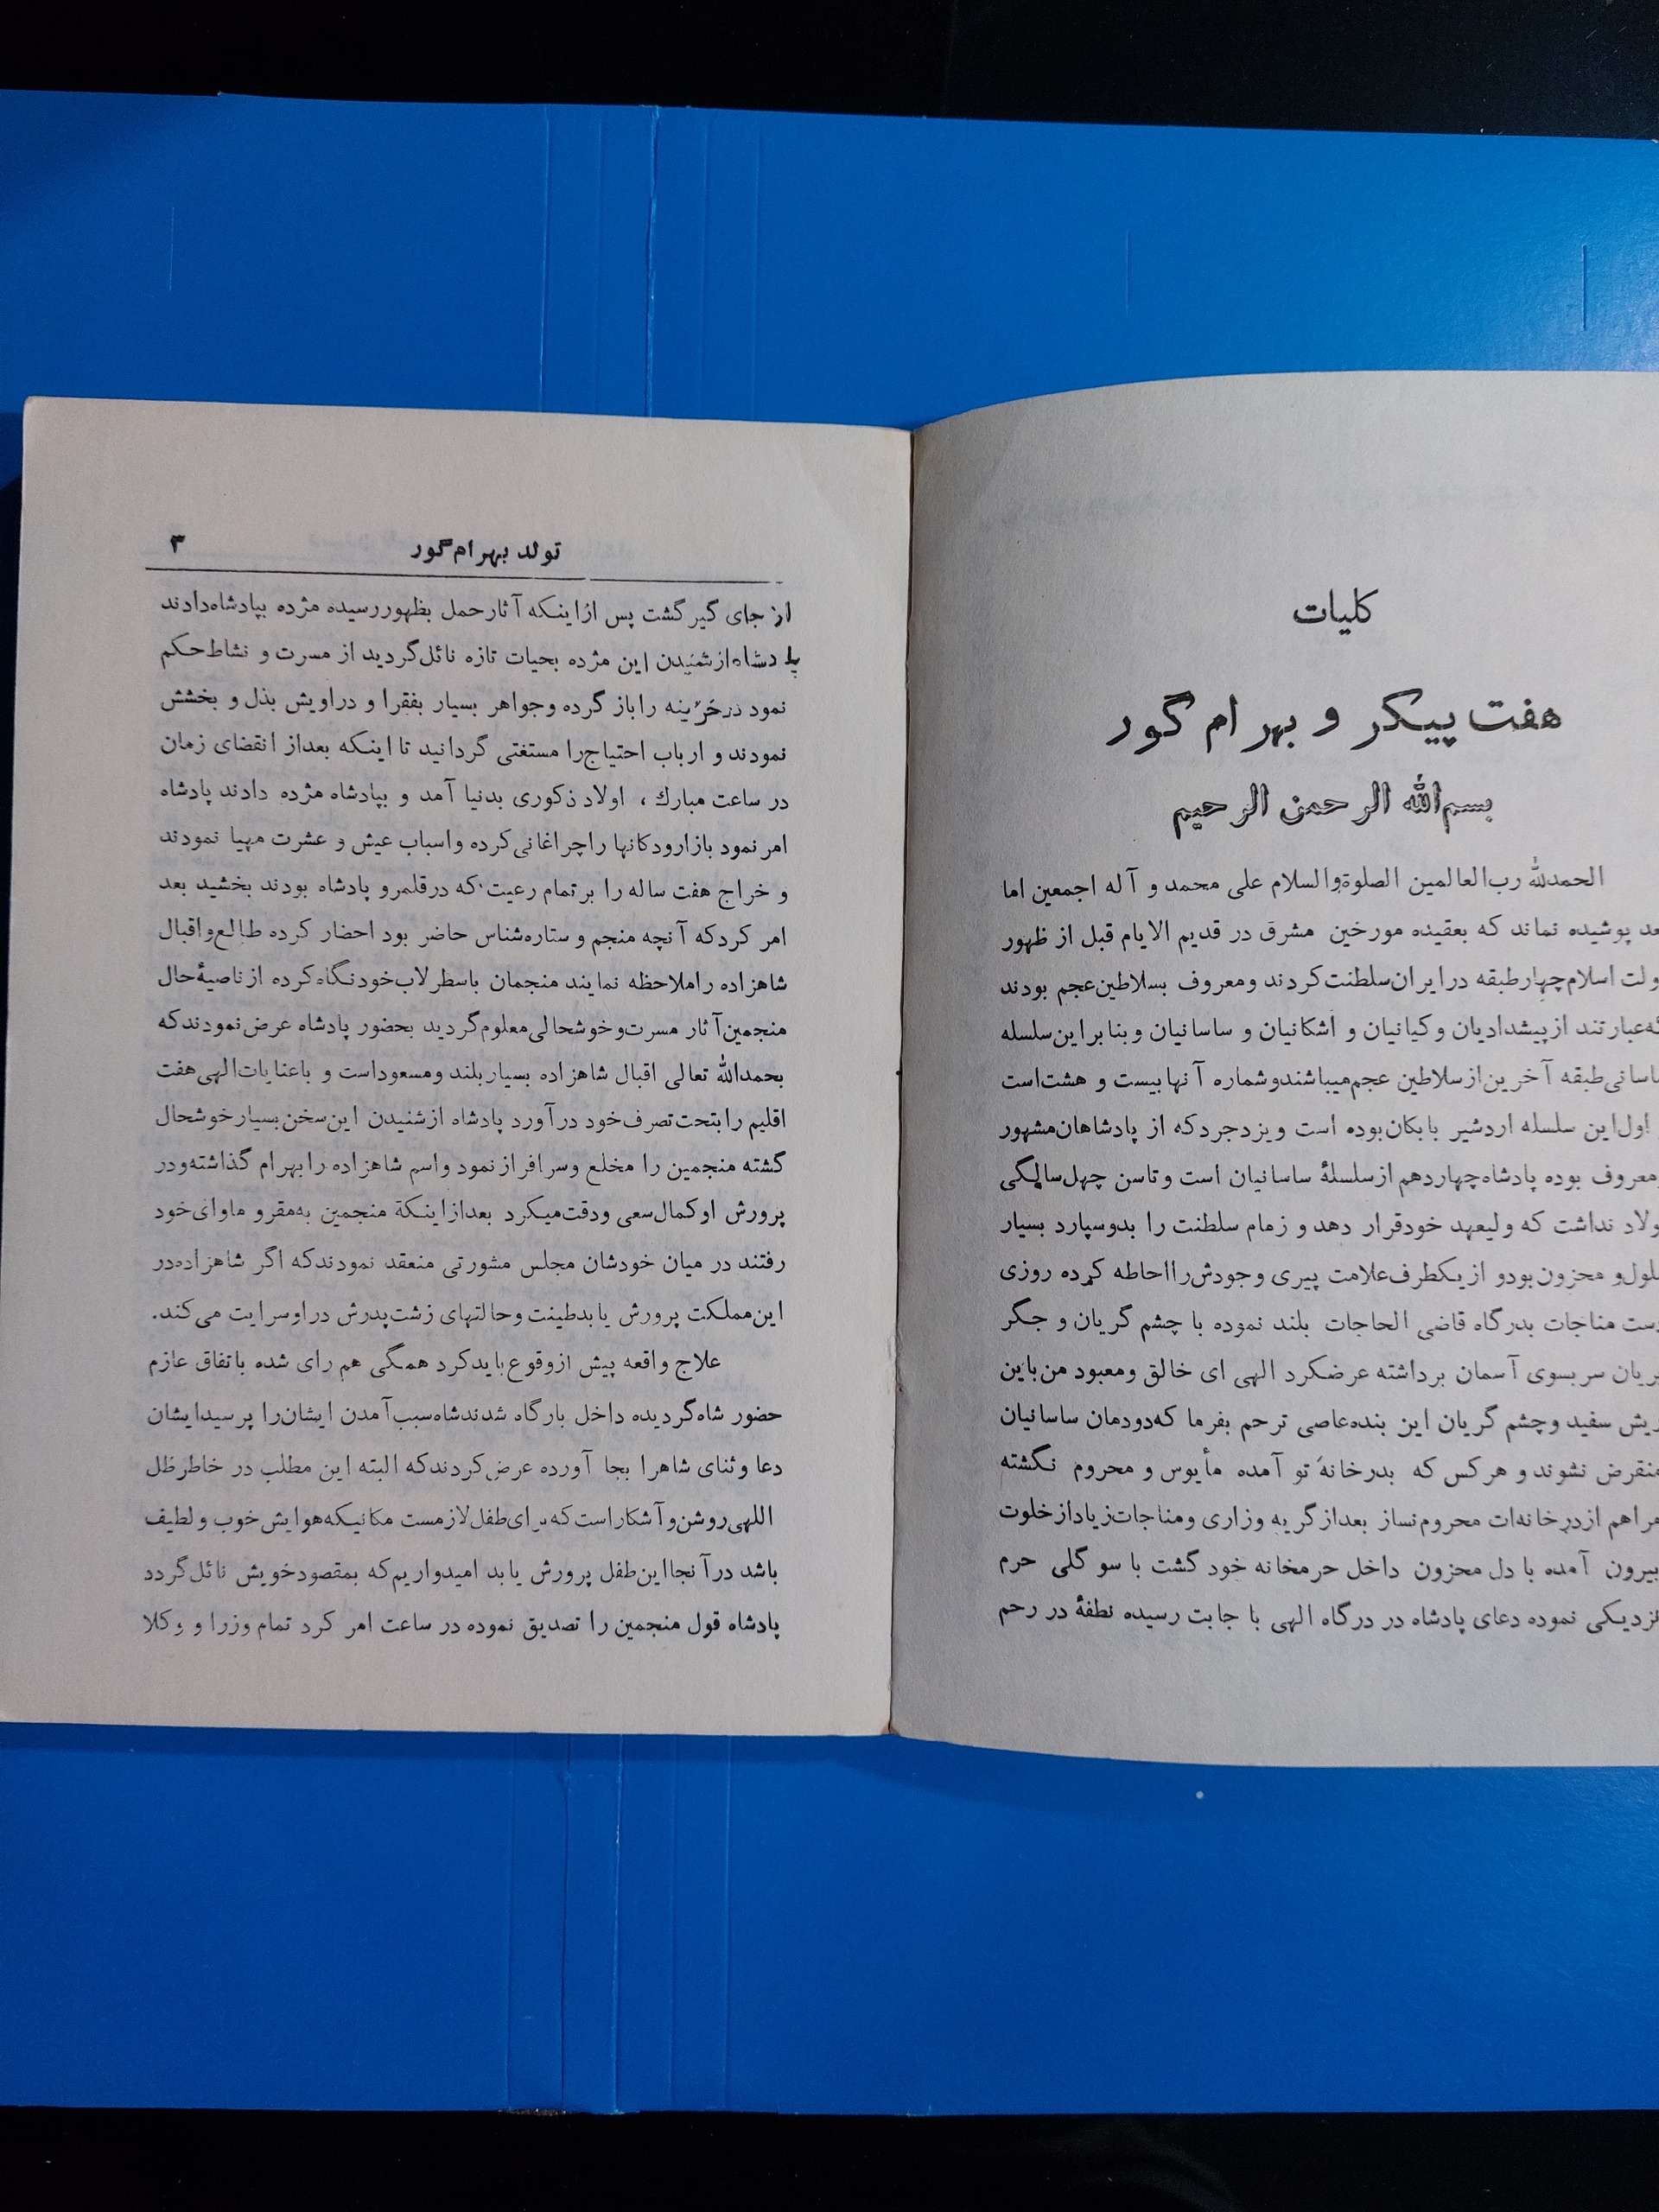 کلیات
هفت پیکر و بهرام گور
بسم‌الله الرحمن الرحیم
الحمدلله رب‌العالمین الصلوة‌والسلام علی محمد و آله اجمعین اما
پوشیده نماند که بعقیده مورخین مشرق در قدیم الایام قبل از ظهور
اسلام چهار طبقه در ایران سلطنت کردند و معروف بسلاطین عجم بودند
عبارتند از پیشدادیان و کیانیان و اشکانیان و ساسانیان و بنا بر این سلسله
طبقه آخرین از سلاطین عجم میباشند و شماره آنها بیست و هشت است
اول این سلسله اردشیر بابکان بوده است و یزدجرد که از پادشاهان مشهور
معروف بوده پادشاه چهاردهم از سلسلهٔ ساسانیان است و تا سن چهل سالگی
نداشت که ولیعهد خود قرار دهد و زمام سلطنت را بدو سپارد بسیار
محزون بود و از یکطرف علامت پیری وجودش را احاطه کرده روزی
مناجات بدرگاه قاضی الحاجات بلند نموده با چشم گریان و جگر
سر بسوی آسمان برداشته عرضکرد الهی ای خالق و معبود من باین
ریش سفید و چشم گریان این بنده عاصی ترحم بفرما که دودمان ساسانیان
منقرض نشوند و هر کس که بدر خانهٔ تو آمده مأیوس و محروم نگشته
مرا هم از در خانه‌ات محروم نساز بعد از گریه و زاری و مناجات زیاد از خلوت
بیرون آمده با دل محزون داخل حرمخانه خود گشت با سو گلی حرم
نزدیکی نموده دعای پادشاه در درگاه الهی با جابت رسیده نطفهٔ در رحم
تولد بهرام گور ۳
از جای گیر گشت پس از اینکه آثار حمل بظهور رسیده مژده بپادشاه دادند
پادشاه از شنیدن این مژده بحیات تازه نائل گردید از مسرت و نشاط حکم
نمود در خزینه را باز گرده و جواهر بسیار بفقرا و دراویش بذل و بخشش
نمودند و ارباب احتیاج را مستغنی گردانید تا اینکه بعد از انقضای زمان
در ساعت مبارك ، اولاد ذکوری بدنیا آمد و بپادشاه مژده دادند پادشاه
امر نمود بازار ودکانها را چراغانی کرده و اسباب عیش و عشرت مهیا نمودند
و خراج هفت ساله را بر تمام رعیت که در قلمرو پادشاه بودند بخشید بعد
امر کرد که آنچه منجم و ستاره شناس حاضر بود احضار کرده طالع و اقبال
شاهزاده را ملاحظه نمایند منجمان باسطرلاب خود نگاه کرده از ناصیهٔ حال
منجمین آثار مسرت و خوشحالی معلوم گردید بحضور پادشاه عرض نمودند که
بحمدالله تعالی اقبال شاهزاده بسیار بلند و مسعود است و با عنایات الهی هفت
اقلیم را بتحت تصرف خود در آورد پادشاه از شنیدن این سخن بسیار خوشحال
گشته منجمین را مخلع و سرافراز نمود و اسم شاهزاده را بهرام گذاشته و در
پرورش او کمال سعی ودقت میکرد بعد از اینکهٔ منجمین به مقرو ماوای خود
رفتند در میان خودشان مجلس مشورتی منعقد نمودند که اگر شاهزاده در
این مملکت پرورش یابد طینت و حالتهای زشت پدرش در او سرایت می کند.
علاج واقعه پیش از وقوع باید کرد همگی هم رای شده باتفاق عازم
حضور شاه گردیده داخل بارگاه شدند شاه سبب آمدن ایشان را پرسید ایشان
دعا وثنای شاهرا بجا آورده عرض کردند که البته این مطلب در خاطر ظل
اللهی روشن و آشکار است که برای طفل لازمست مکانیکه هوایش خوب و لطیف
باشد در آنجا این طفل پرورش یابد امیدواریم که بمقصود خویش نائل گردد
پادشاه قول منجمین را تصدیق نموده در ساعت امر کرد تمام وزرا و وکلا